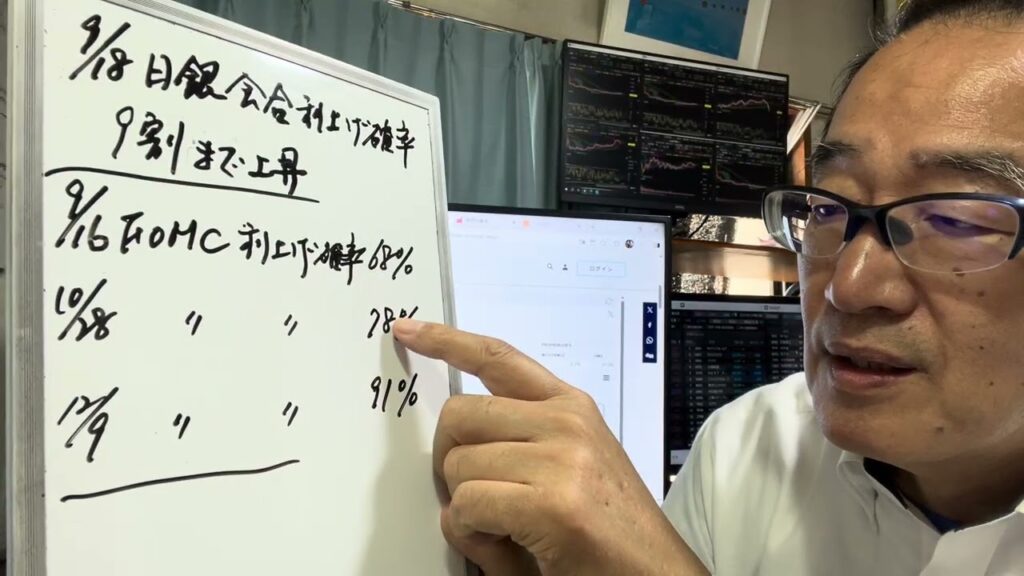 9/18 日銀会合利上げ確率
9割まで上昇
9/16 FOMC 利上げ確率 68%
10/28 〃 〃 78%
12/9 〃 〃 91%
ログイン